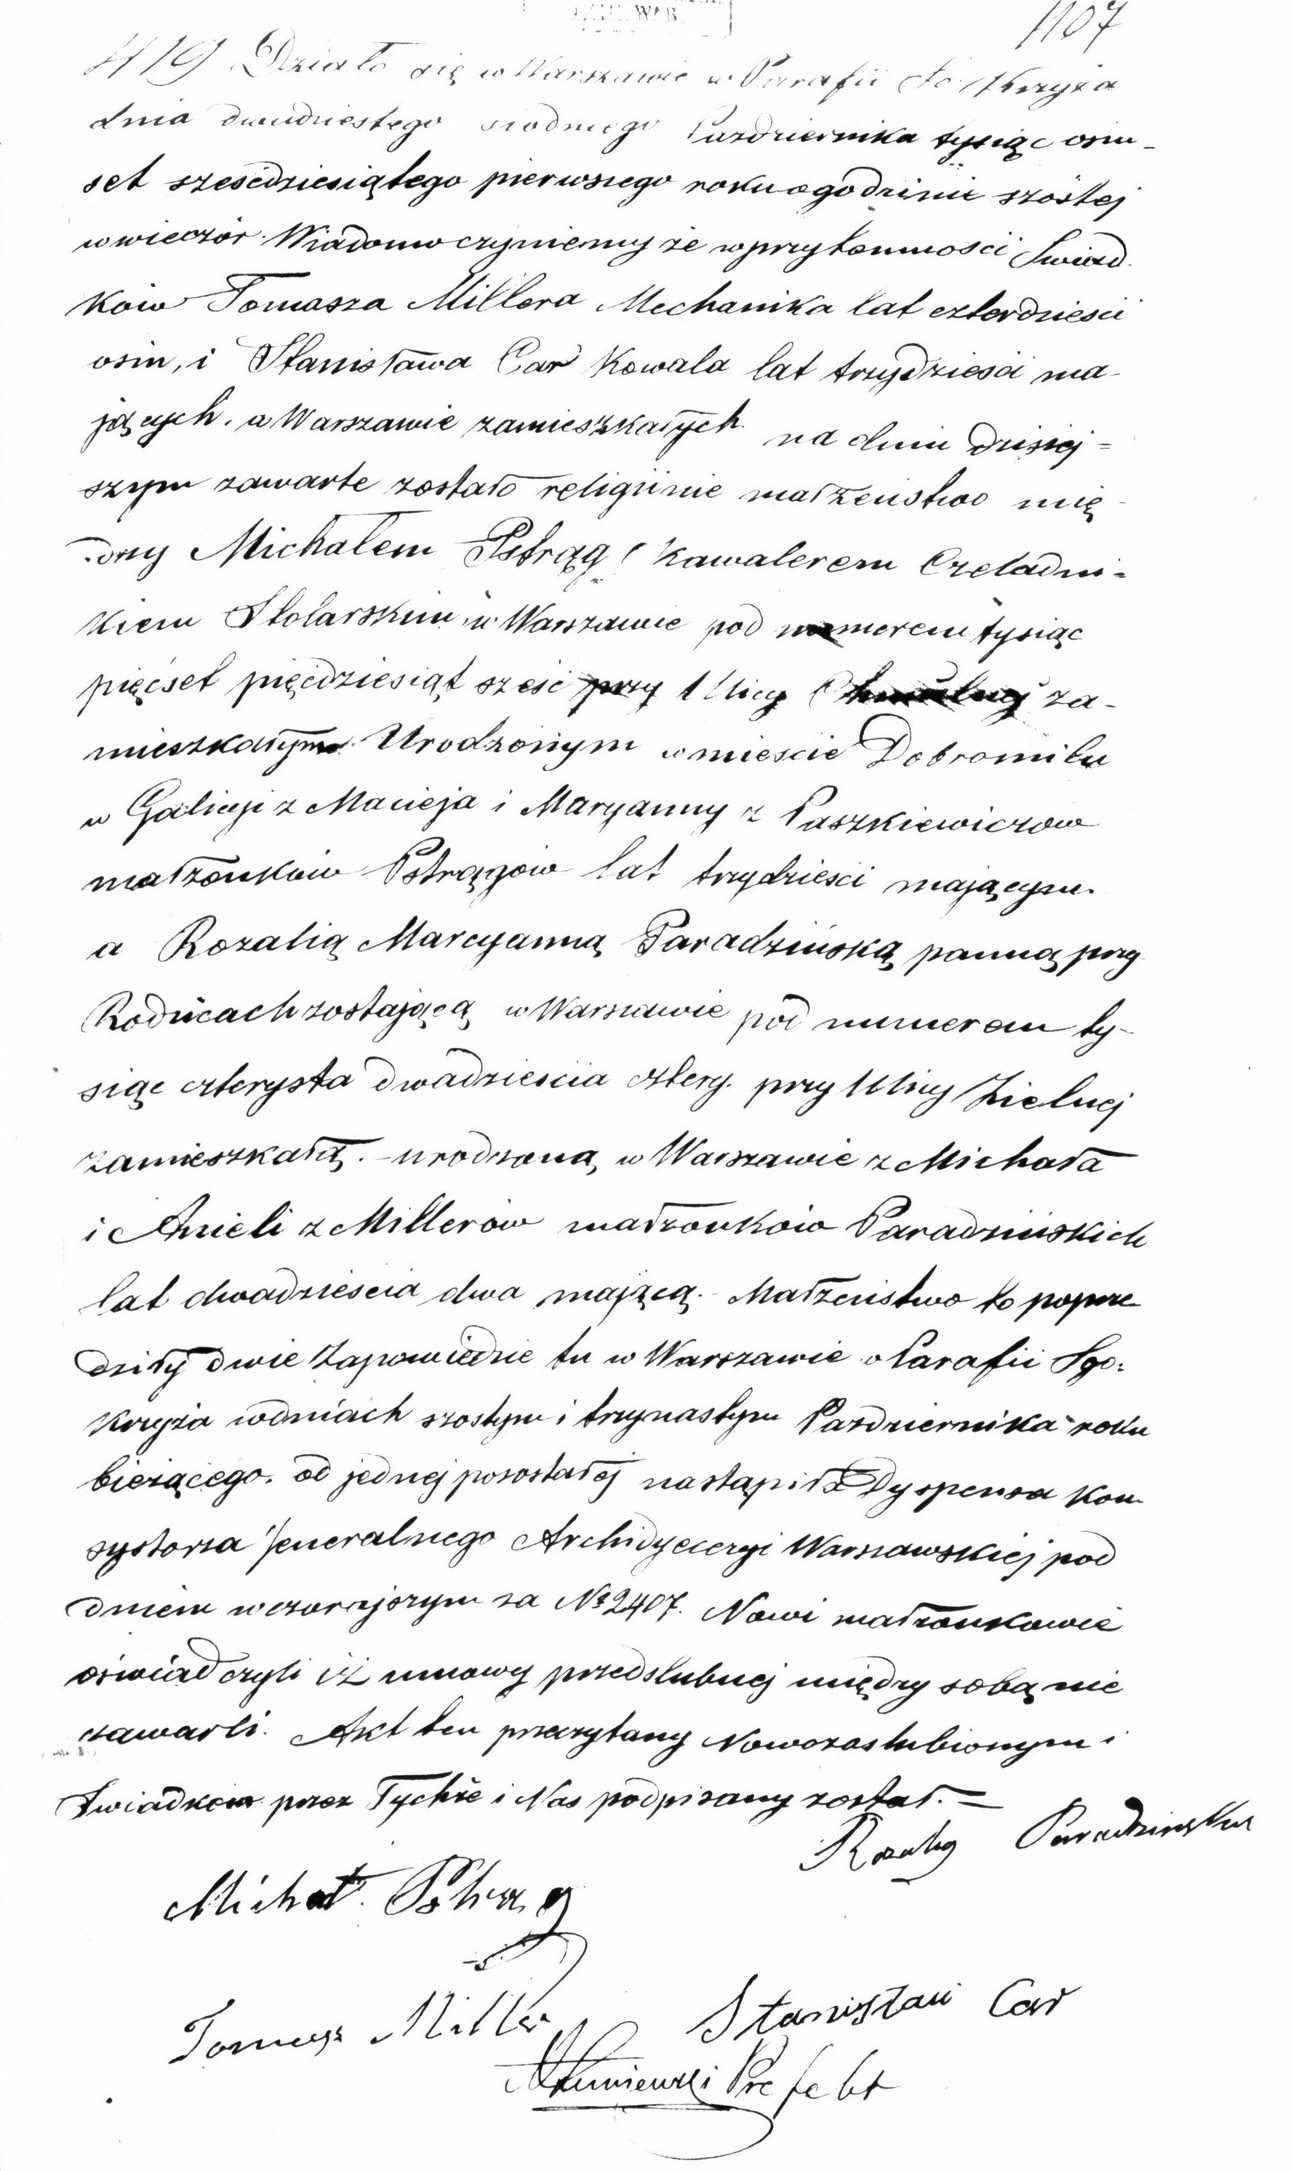 1107
419 Działo się w Warszawie w Parafii Sgo Krzyża
dnia dwudziestego siodmego Pazdziernika tysiąc osm-
set sześcdziesiątego pierwszego roku o godzinie szóstej
w wieczór. Wiadomo czyniemy że w przytomności Swiad
ków Tomasza Millera Mechanika lat czterdzieści
osm, i Stanisława Car Kowala lat trzydzieści ma-
jących. w Warszawie zamieszkałych na dniu dzisiej=
szym zawarte zostało religijnie małżeństwo mię
dzy Michałem Pstrąg Kawalerem Czeladni-
kiem Stolarskim w Warszawie pod numerem tysiąc
pięćset pięćdziesiąt sześć przy Ulicy Chmielnej za-
mieszkałym Urodzonym w mieście Dobromilu
w Galicyi z Macieja i Maryanny z Paszkiewiczow
małżonków Pstrągów lat trzydzieści mającym.
a Rozalią Marcyanną Paradzińską panną przy
Rodzicach zostającą w Warszawie pod numerem ty-
siąc czterysta dwadzieścia cztery. przy Ulicy Zielnej
zamieszkałą. - urodzoną w Warszawie z Michała
i Anieli z Millerów małżonków Paradzińskich
lat dwadzieścia dwa mającą. - Małżeństwo to poprze
dziły dwie Zapowiedzie tu w Warszawie w Parafii Sgo:
Krzyża w dniach szostym i trzynastym Pazdziernika roku
bieżącego. od jednej pozostałej nastąpiła Dyspensa Kon
systorza Jeneralnego Archidyecezyi Warszawskiej pod
dniem wczorajszym za No 2407. Nowi małżonkowie
oświadczyli iż umowy przedślubnej między sobą nie
zawarli. Akt ten przeczytany Nowozaślubionym i
Swiadkom przez Tychże i Nas podpisany został. =
Rozalia Paradzińska
Michał Pstrąg
Tomasz Miller Stanisław Car
Prefekt